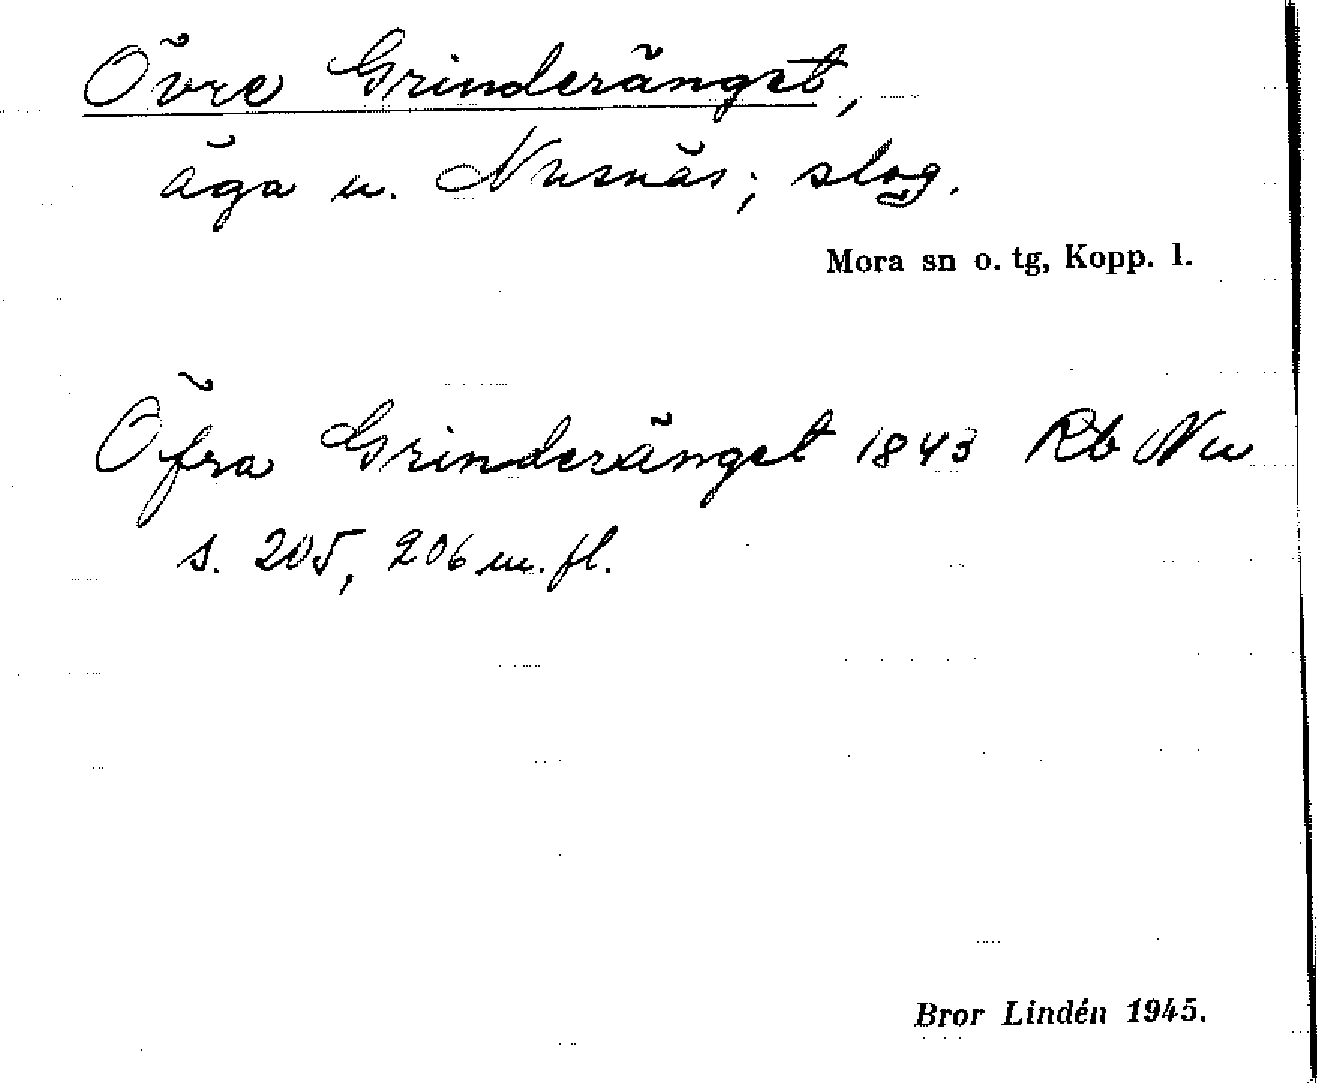 Övre Grinderänget,
äga u. Nusnäs; slog.
Mora sn o. tg, Kopp. l.
Öfra Grinderänget 1843 Rb Nu
s. 205, 206 m. fl.
Bror Lindén 1945.